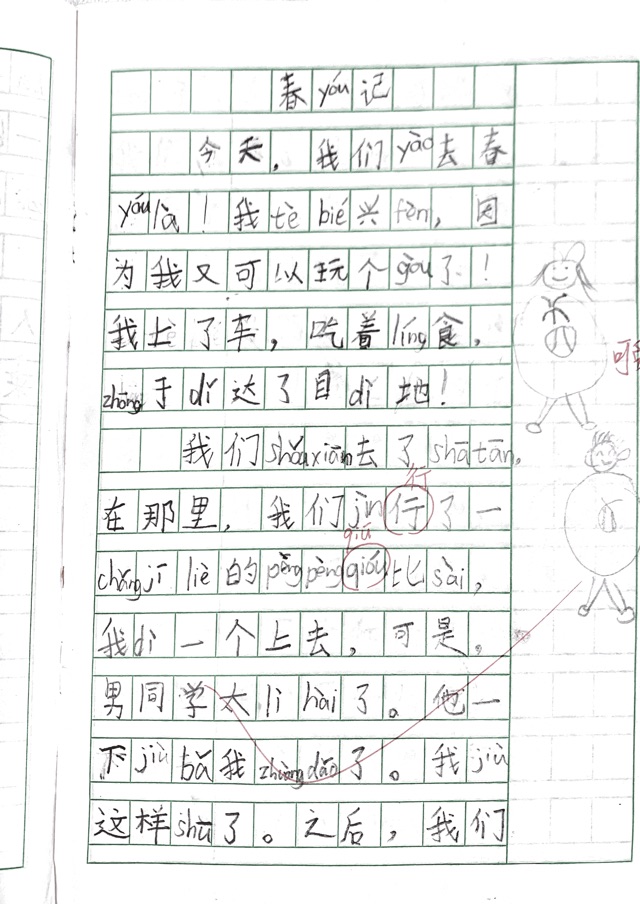 春yóu记
今天，我们yào去春
yóu là！我tè bié兴fèn，因
为我又可以玩个gòu了！
我上了车，吃着líng食，
zhōng于dǐ达了目dì地！
我们shǒu xiān去了shā tān。
在那里，我们jìn行了一
行
qiú
chǎng jī liè的pèng pèng gióu比sài，
我dì一个上去，可是，
男同学太lì hài了。他一
下jiù bǎ我zhuàng dǎo了。我jiù
这样shū了。之后，我们